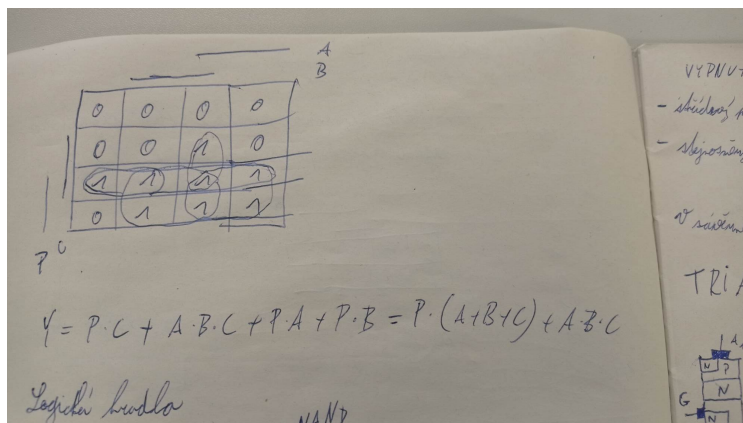 A
B
0 0 0 0
0 0 1 0
1 1 1 1
0 1 1 1
P C
Y = P·C + A·B·C + P·A + P·B = P·(A+B+C) + A·B·C
Logická hradla
NAND
VYPNUT
- střídavý
- stejnosměrný
V
TRIA
A
N P
N
G
N